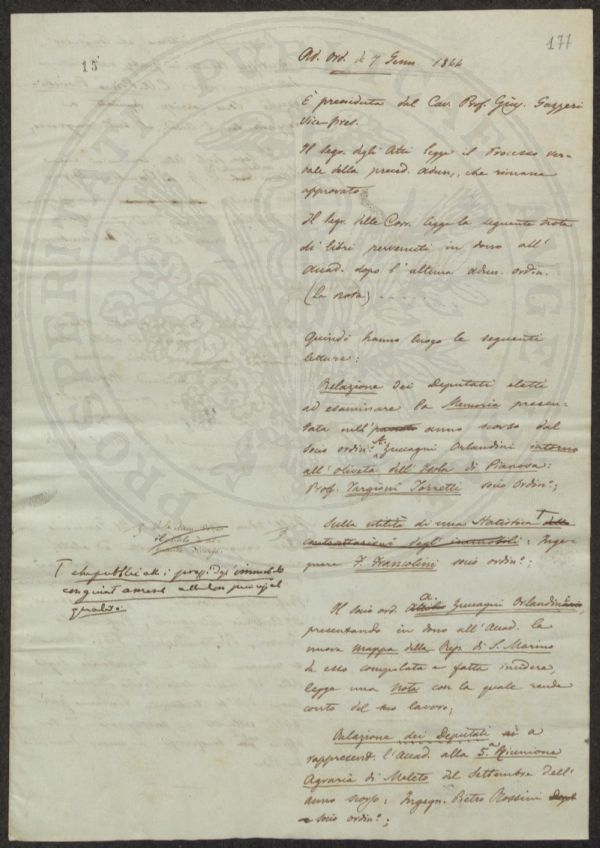 177
15
Ad. Ord. de 7 Genn. 1844
È preseduta dal Cav. Prof. Gius. Gazzeri
Vice-Pres.
Il Segr. degli Atti legge il Processo ver-
bale della preced. adun., che rimane
approvato.
Il Segr. delle Corr. legge la seguente nota
di libri pervenuti in dono all'
Accad. dopo l'ultima adun. ordin.
(la nota) . . . . .
Quindi hanno luogo le seguenti
letture:
Relazione dei Deputati eletti
ad esaminare la Memoria presen-
tata nell' anno scorso dal
Socio ordin.º Zuccagni Orlandini intorno
all'oliveta dell'Isola di Pianosa:
Prof. Targioni Tozzetti socio ordin.º;
Sulla utilità di una Statistica T della
contrattazioni degli immobili: Inge-
gnere F. Francolini socio ordin.º;
T che pubblichi i prezzi degli immobili
Il Socio ord. A. Zuccagni Orlandini,
presentando in dono all'Accad. la
nuova mappa della Rep. di S. Marino
da esso compilata e fatta incidere,
legge una Nota con la quale rende
conto del suo lavoro;
Relazione dei Deputati a
rappresent. l'Accad. alla 5.ª Riunione
Agraria di Meleto del Settembre dell'
anno scorso: Ingegn. Pietro Rossini
socio ordin.º;